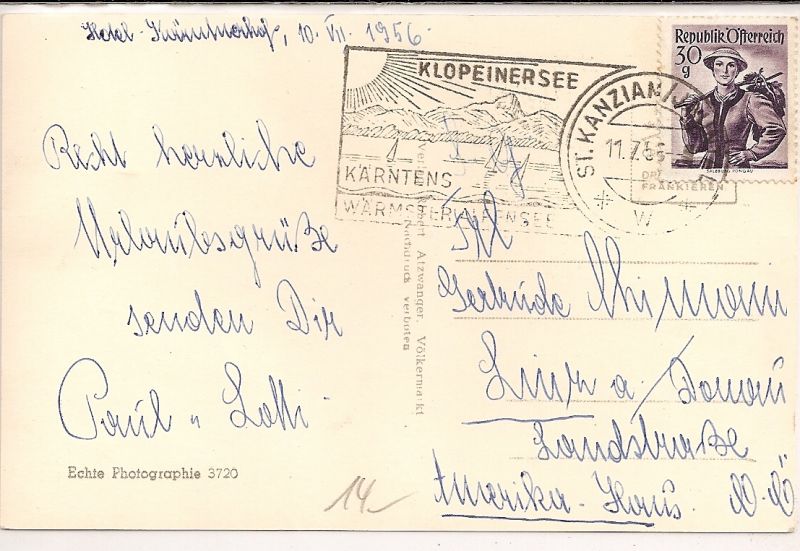 Hotel Kärntnerhof, 10. VII. 1956
Recht herzliche
Urlaubsgrüße
senden Dir
Paul u Lotti
Echte Photographie 3720
14-
Atzwanger, Völkermarkt
Nachdruck verboten
KLOPEINERSEE
KÄRNTENS
WÄRMSTER
ST. KANZIAN
11.7.56
W
Republik Österreich
30 g
SALZBURG PONGAU
FRANKIEREN
Frl
Gertrude
Linz a/Donau
Landstraße
Amerika-Haus. O.Ö